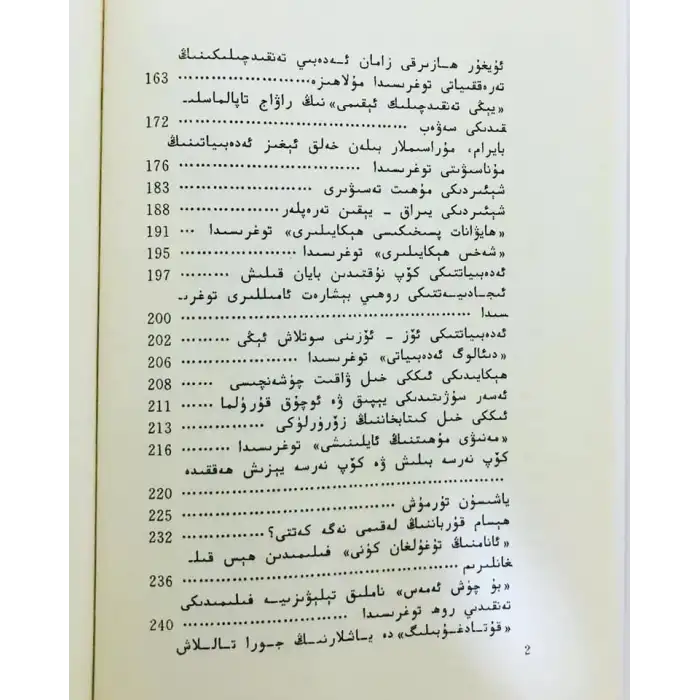 ئۇيغۇر ھازىرقى زامان ئەدەبىي تەنقىدچىلىكىنىڭ
تەرەققىياتى توغرىسىدا مۇلاھىزە ........................ 163
«يېڭى تەنقىدچىلىك ئېقىمى» نىڭ راۋاج تاپالماسلى‍ـ
قىدىكى سەۋەب ........................ 172
بايرام، مۇراسىملار بىلەن خەلق ئېغىز ئەدەبىياتىنىڭ
مۇناسىۋىتى توغرىسىدا ........................ 176
شېئىردىكى مۇھىت تەسۋىرى ........................ 183
شېئىردىكى يىراق - يېقىن تەرەپلەر ........................ 188
«ھايۋانات پسىخىكىسى ھېكايىلىرى» توغرىسىدا ... 191
«شەخس ھېكايىلىرى» توغرىسىدا ........................ 195
ئەدەبىياتتىكى كۆپ نۇقتىدىن بايان قىلىش ......... 197
ئىجادىيەتتىكى روھىي بېشارەت ئامىللىرى توغرىـ
سىدا ........................ 200
ئەدەبىياتتىكى ئۆز - ئۆزىنى سوتلاش ئېڭى ......... 202
«دىئالوگ ئەدەبىياتى» توغرىسىدا ........................ 206
ھېكايىدىكى ئىككى خىل ۋاقىت چۈشەنچىسى ...... 208
ئەسەر سۇژىتىدىكى يېپىق ۋە ئوچۇق قۇرۇلما ...... 211
ئىككى خىل كىتابخاننىڭ زۆرۈرلۈكى ............... 213
«مەنىۋى مۇھىتنىڭ ئايلىنىشى» توغرىسىدا ......... 216
كۆپ نەرسە بىلىش ۋە كۆپ نەرسە يېزىش ھەققىدە
........................ 220
ياشىسۇن تۇرمۇش ........................ 225
ھېسام قۇرباننىڭ لەقىمى نەگە كەتتى؟ ............... 232
«ئانامنىڭ تۇغۇلغان كۈنى» فىلىمىدىن ھېس قىلـ
غانلىرىم ........................ 236
«بۇ چۈش ئەمەس» ناملىق تېلېۋىزىيە فىلىمىدىكى
تەنقىدىي روھ توغرىسىدا ........................ 240
«قۇتادغۇبىلىگ» دە ياشلارنىڭ جورا تاللاش
2